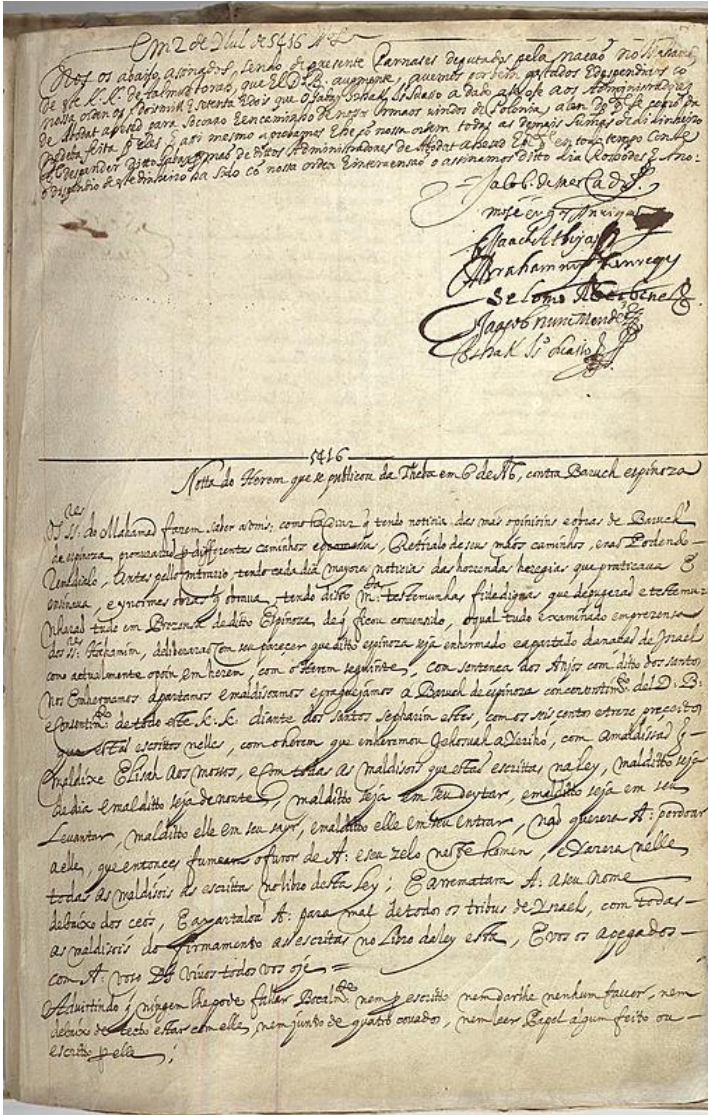 Em 2 de Ilul de 5416
Nos os abaixo asinados, sendo de presente Parnases deputados pela nacaõ no Mahamad
de este K. K. de talmud torah, que El D. B. augmente, avemos por bem gastados Edespendidos co
nossa orden os
de Abodat aHesed para socorro Eencaminho de nosos Irmaos vindos de Polonia, alem do
feita p elles E asi mesmo aprobamos E he co nossa ordem todas as demais sumas de di dinheiro
despender Ditto Administradores de Abodat aHesed em todo tempo
o despendio de este dinheiro ha sido co nossa orden Eintervensaõ o assinamos ditto dia Ros
Jacob. de mercado
mosé
Isaack Athyas
Abraham
Selomo Abarbanel
Jaacob nunes Mendes
Ishak
5416
Notta do Herem que se publicou da Theba em 6 de Ab, contra Baruch espinoza
Os SS. do Mahamad fazem saber a vms: como ha diaz q tendo noticia das mas opinioins e obras de Baruch
de espinoza procuraraõ p differentes caminhos e promesas, Retiralo de seus máos caminhos, e naõ Podendo
Remedialo, antes pello contrario, tendo cada dia mayores noticias das horrendas heregias que praticava E
ensinava, e ynormes obras q obrava, tendo disto m.tas testemunhas fidedignas que depuzeraõ e testemu
nharaõ tudo em Prezensa de ditto Espinoza, de q ficou convensido, o qual tudo examinado em prezensa
dos ss.res Hahamim, deliberaraõ com seu parecer que ditto espinoza seja enhermado e apartado da naçaõ de Israel
como actualmente o poin em herem, com o Herem seguinte, com sentenca dos Anjos com ditto dos santos
nos Enhermamos apartamos e maldisoamos e praguejámos a Baruch de espinoza com consentim.to del D: B:
e consentim.to de todo este K. K. diante dos santos sepharim estes, com os seis centos e treze preceitos
que estaõ escrittos nelles, com o herem que enheremou Jehosuah a Yeriho, com a maldissaõ q
maldixe Elisah aos mossos, e com todas as maldisois que estaõ escrittas na ley, malditto seja
de dia e malditto seja de noute, malditto seja em seu deytar, e malditto seja em seu
Levantar, malditto elle em seu sayr, e malditto elle em seu entrar, naõ querera A: perdoar
a elle, que entonces fumeara o furor de A: e seu zelo neste homem, e yazera nelle
todas as maldisois as escrittas no libro desta Ley; E arrematara A: a seu nome
debaixo dos ceos, E apartaloa A: para mal de todos os tribus de Israel, com todas
as maldisois do firmamento as escritas no Libro da ley esta, E vos os apegados
com A: voso D. vivos todos vos oje =
Advirtindo q ningem lhe pode fallar Bocalm.te nem p escritto nem darlhe nenhum favor, nem
debaixo de tecto estar com elle, nem junto de quatro covados, nem leer Papel algum feito ou
escritto p elle ;